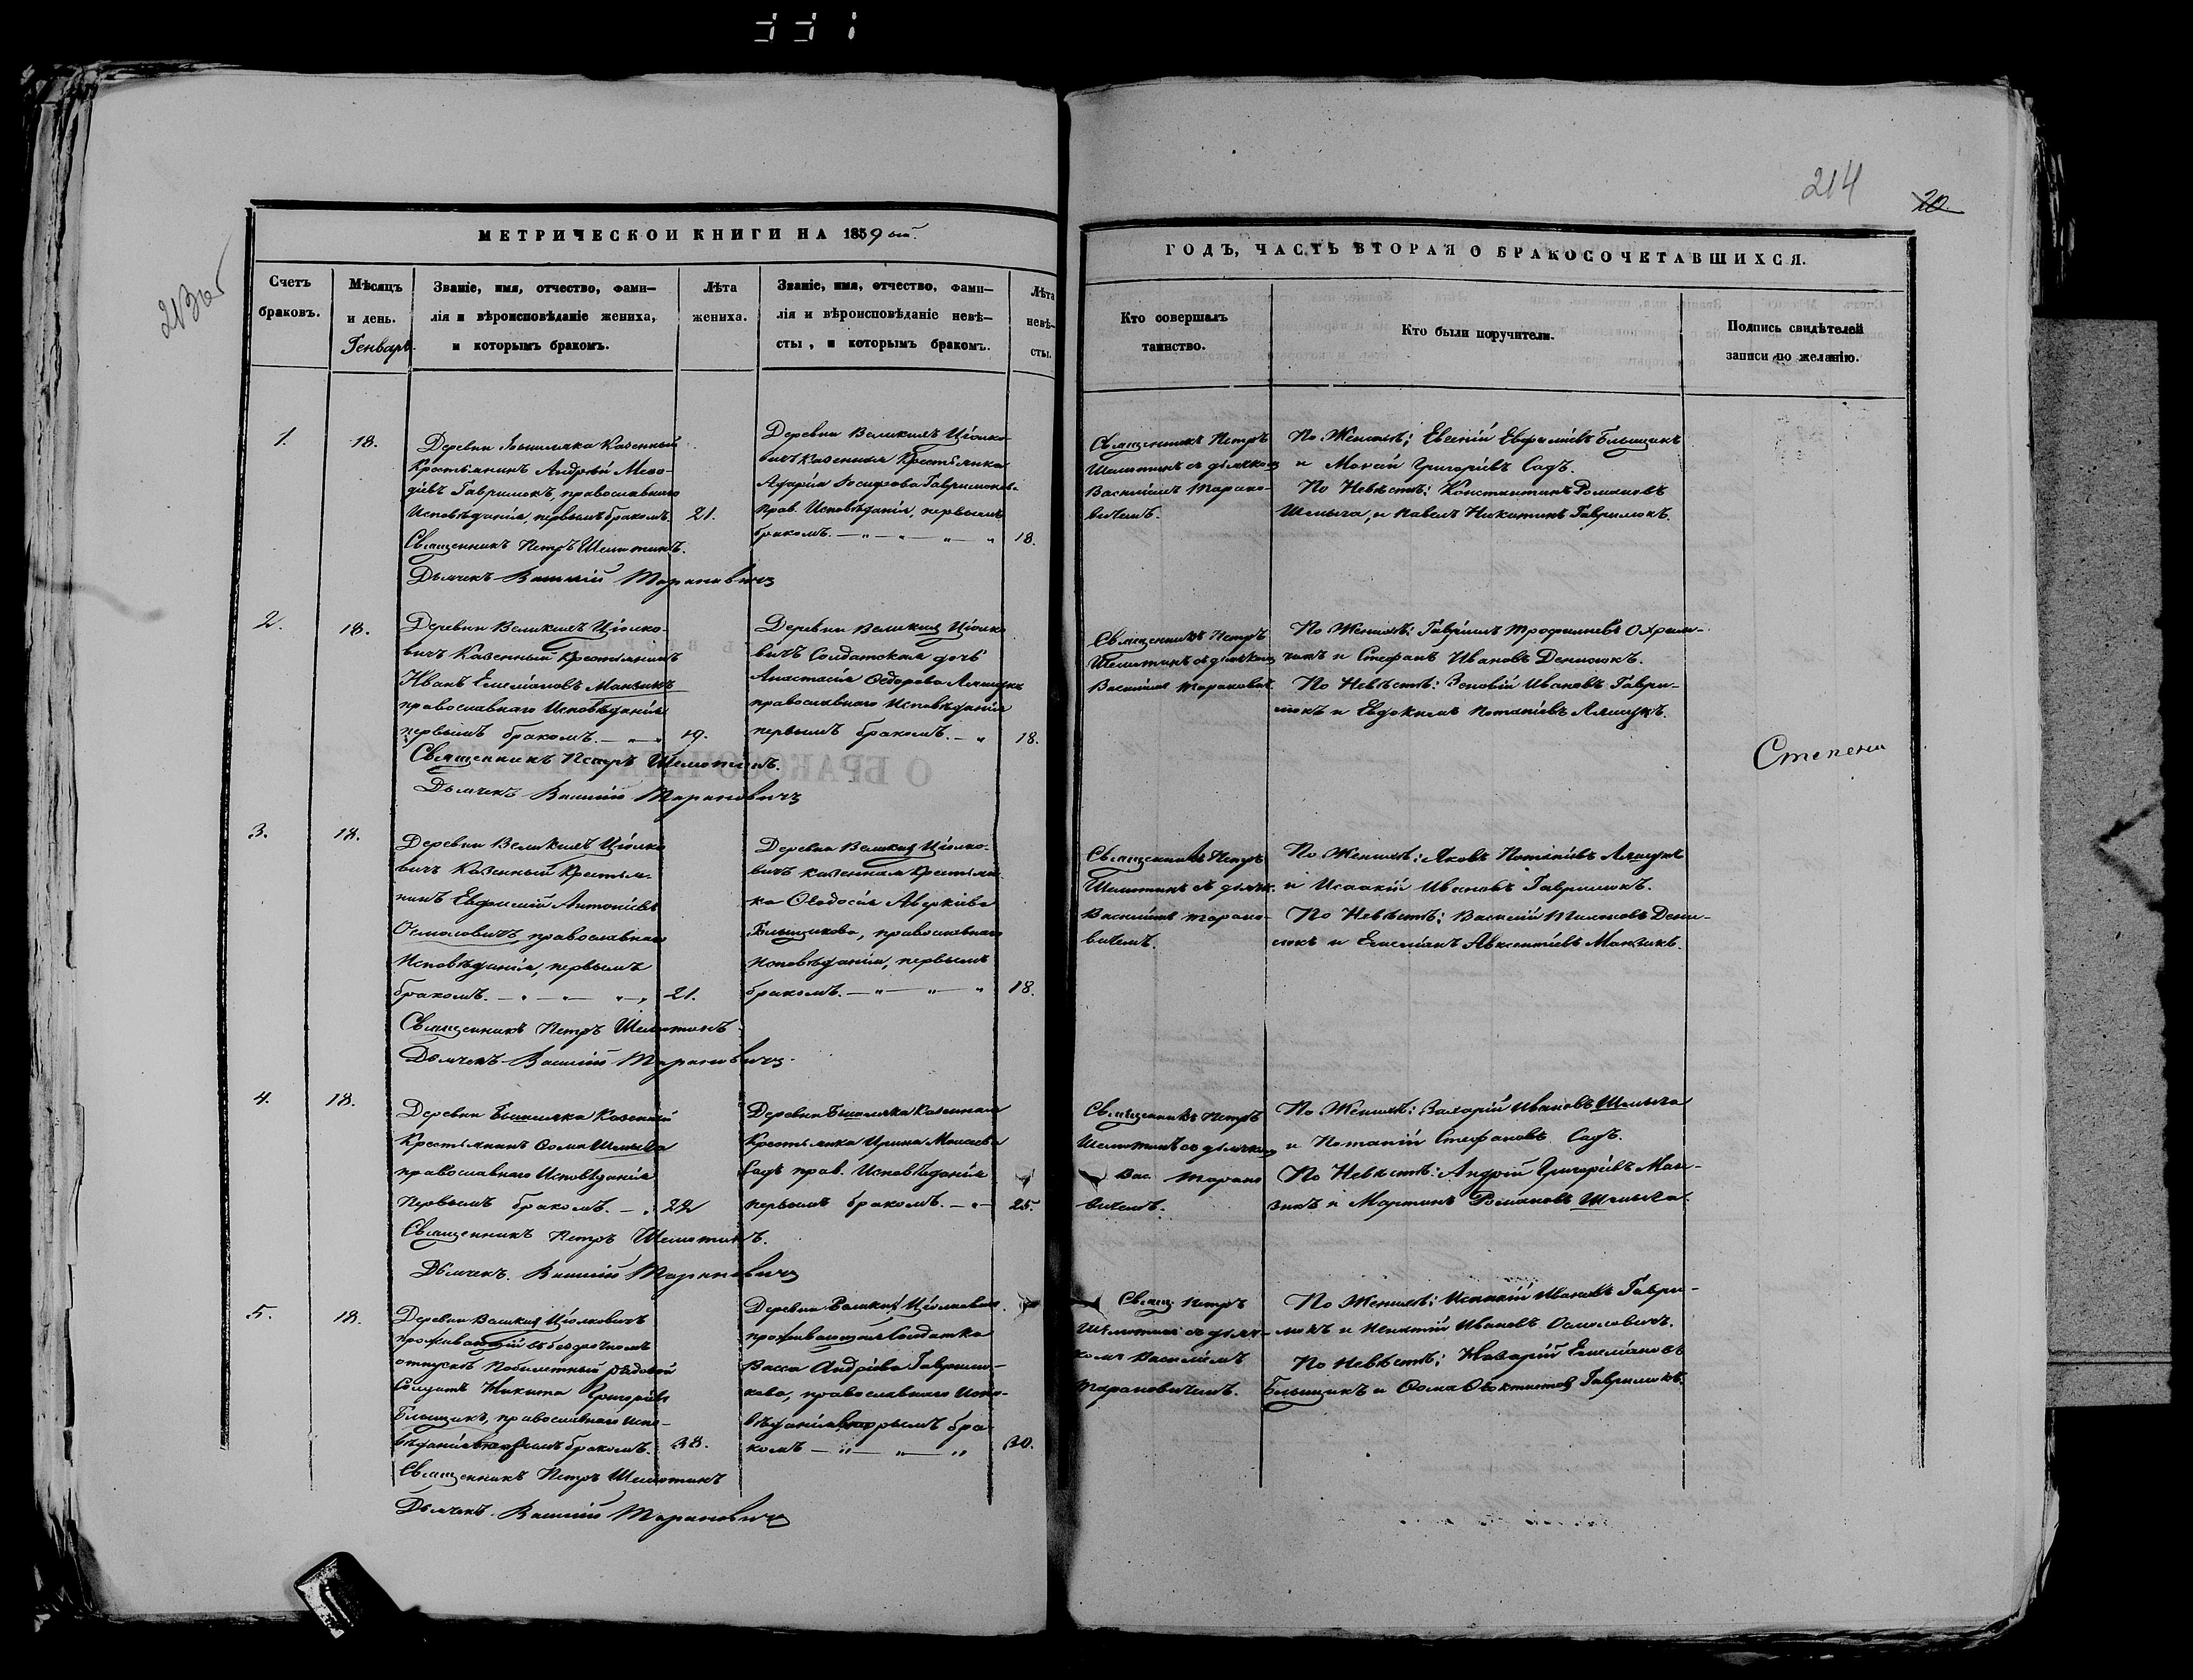 331
214
20
213 об
МЕТРИЧЕСКОЙ КНИГИ НА 1859 ый.
Счетъ браковъ.
Мѣсяцъ и день.
Генварь.
Званіе, имя, отчество, фами-
лія и вѣроисповѣданіе жениха,
и которымъ бракомъ.
Лѣта жениха.
Званіе, имя, отчество, фами-
лія и вѣроисповѣданіе невѣ-
сты, и которымъ бракомъ.
Лѣта невѣ-
сты.
ГОДЪ, ЧАСТЬ ВТОРАЯ О БРАКОСОЧЕТАВШИХСЯ.
Кто совершалъ
таинство.
Кто были поручители.
Подпись свидѣтелей
записи по желанію.
1.
18.
Деревни Казенный
Крестьянинъ Андрей Меѳо-
діевъ Гаврилюкъ, православнаго
Исповѣданія, первымъ бракомъ.
21.
Священникъ Петръ Шеметилъ.
Дьячекъ Василій Тарановичъ
Деревни Великихъ Цѣолко-
вичъ Казенная Крестьянка
Іосифова Гаврилюкова
Прав. Исповѣданія, первымъ
бракомъ.
18.
Священникъ Петръ
Шеметилъ съ дьячкомъ
Василіемъ Тарано-
вичемъ.
По Женихѣ: Евсеній Евфиміевъ Блыщикъ
и Моисей Григорьевъ Садъ.
По Невѣстѣ: Константинъ Романовъ
Шлыга, и Павелъ Никитинъ Гаврилюкъ.
2.
18.
Деревни Великихъ Цѣолко-
вичъ Казенный Крестьянинъ
Иванъ Емеліановъ Манзикъ
православнаго Исповѣданія
первымъ бракомъ.
19.
Священникъ Петръ Шеметилъ.
Дьячекъ Василій Тарановичъ
Деревни Великихъ Цѣолко
вичъ Солдатская дочь
Анастасія Ѳедорова Лящукъ
православнаго Исповѣданія
первымъ бракомъ.
18.
Священникъ Петръ
Шеметилъ съ дьячкомъ
Василіемъ Тарановичемъ
По Женихѣ: Гавріилъ Трофимовъ Охрим-
чукъ и Стефанъ Ивановъ Денисюкъ.
По Невѣстѣ: Зеновій Ивановъ Гаври-
люкъ и Евдокимъ Потапіевъ Лящукъ.
Степени
3.
18.
Деревни Великихъ Цѣолко
вичъ Казенный Крестья-
нинъ Евфимій Антоніевъ
Осмоловичъ, православнаго
Исповѣданія, первымъ
бракомъ.
21.
Священникъ Петръ Шеметилъ
Дьячекъ Василій Тарановичъ.
Деревни Великихъ Цѣолко-
вичъ казенная Крестьян-
ка Ѳеодосія Аверкіева
Блыщикова, православнаго
исповѣданія, первымъ
бракомъ.
18.
Священникъ Петръ
Шеметилъ съ дьячк.
Василіемъ Тарано-
вичемъ.
По Женихѣ: Яковъ Потапіевъ Лящукъ
и Исаакій Ивановъ Гаврилюкъ.
По Невѣстѣ: Василій Дени-
сюкъ и Емеліанъ Авксентіевъ Манзикъ.
4.
18.
Деревни Казенный
Крестьянинъ Ѳома Шлыга
православнаго Исповѣданія
Первымъ бракомъ.
22
Священникъ Петръ Шеметилъ.
Дьячекъ. Василій Тарановичъ
Деревни Казенная
Крестьянка Ирина Моисеева
Садъ прав. Исповѣданія
первымъ бракомъ.
25.
Священникъ Петръ
Шеметилъ съ дьячкомъ
Вас. Тарано
вичемъ.
По Женихѣ: Захарій Ивановъ Шлыга
и Потапій Стефановъ Садъ.
По Невѣстѣ: Андрей Григорьевъ Ман-
зикъ и Мартинъ Романовъ Шлыга.
5.
18.
Деревни Великихъ Цѣолковичъ
проживающій въ безсрочномъ
отпускѣ рядовой
Солдатъ Никита Григорьевъ
Блыщикъ, православнаго испо-
вѣданія вторымъ бракомъ.
38.
Священникъ Петръ Шеметилъ
Дьячекъ. Василій Тарановичъ
Деревни Великихъ Цѣолковичъ
проживающая Солдатка
Васса Андреева Гаврилю-
кова, православнаго Испо-
вѣданія вторымъ бра-
комъ
30.
Свящ. Петръ
Шеметилъ съ дьяч-
комъ Василіемъ
Тарановичемъ.
По Женихѣ: Исаакій Ивановъ Гаври-
люкъ и Игнатій Ивановъ Осмоловичъ.
По Невѣстѣ: Назарій Емеліановъ
Блыщикъ и Ѳома Ѳеоктистовъ Гаврилюкъ.